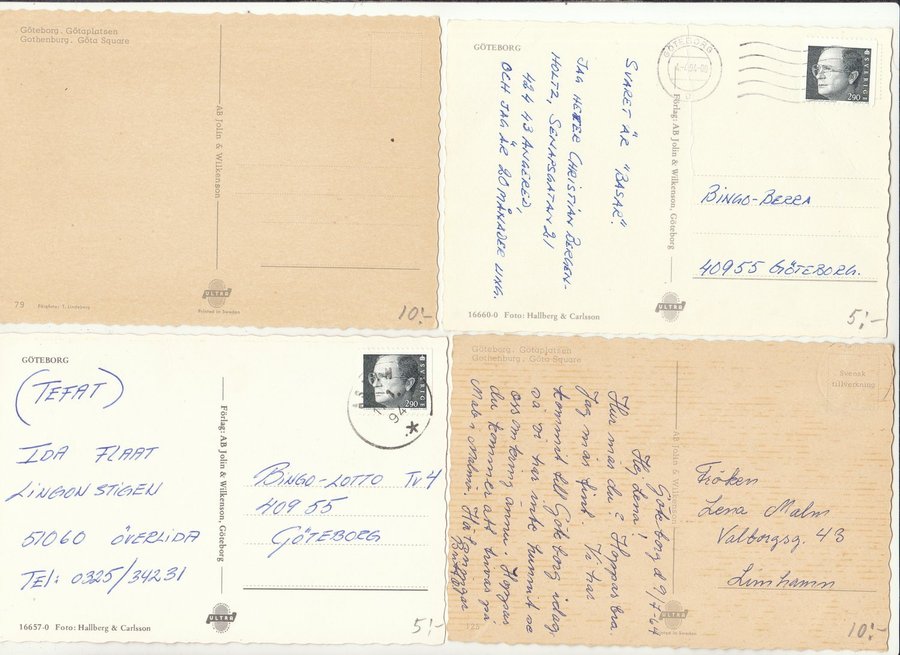 Göteborg. Götaplatsen
Gothenburg. Göta Square
AB Jolin & Wilkenson
79
Färgfoto: T. Lindeberg
ULTRA
Printed in Sweden
10:-
GÖTEBORG
SVARET ÄR "BASAR".
JAG HETER CHRISTIAN BERGEN-
HOLTZ, SENAPSGATAN 21
424 43 ANGERED,
OCH JAG ÄR 20 MÅNADER UNG.
GÖTEBORG
SVERIGE
290
Förlag: AB Jolin & Wilkenson, Göteborg
BINGO-BERRA
40955 GÖTEBORG.
16660-0 Foto: Hallberg & Carlsson
ULTRA
5:-
GÖTEBORG
(TEFAT)
IDA FLAAT
LINGONSTIGEN
51060 ÖVERLIDA
TEL: 0325/34231
Förlag: AB Jolin & Wilkenson, Göteborg
SVERIGE
290
94
BINGO-LOTTO TV4
409 55
GÖTEBORG
16657-0 Foto: Hallberg & Carlsson
ULTRA
5:-
Göteborg. Götaplatsen
Gothenburg. Göta Square
Svensk
tillverkning
Göteborg d 9/7-64
Hej Lena!
Hur mår du? Hoppas bra.
Jag mår fint. Vi har
kommit till Göteborg idag,
så vi har inte hunnit se
oss omkring ännu. Hoppas
du kommer att trivas på
Malmö. Hälsningar
AB Jolin & Wilkenson
Fröken
Lena Malm
Valborgsg. 43
Limhamn
125
ULTRA
Printed in Sweden
10:-